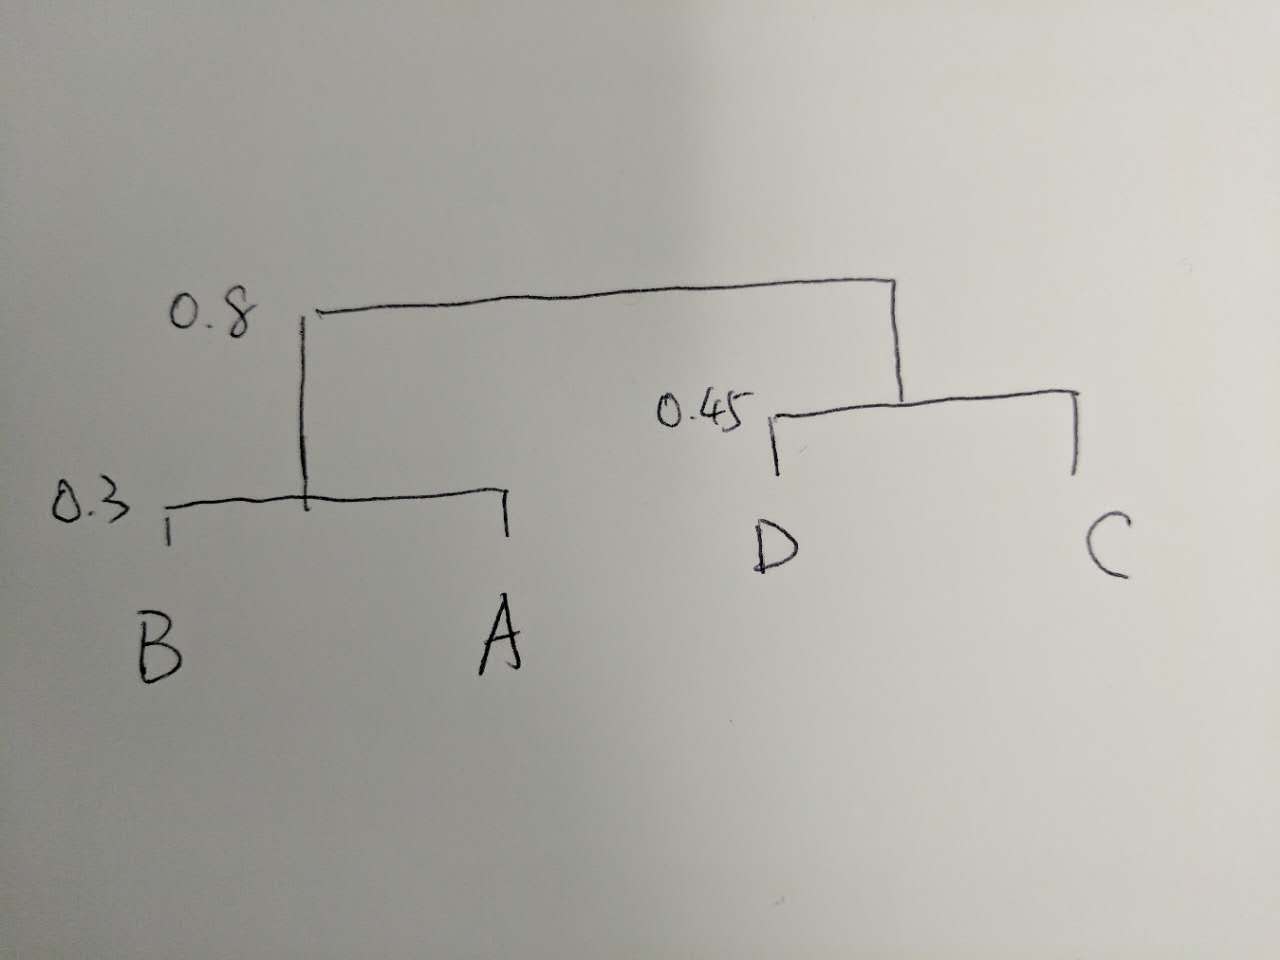 0.8
0.45
0.3
D
C
B
A